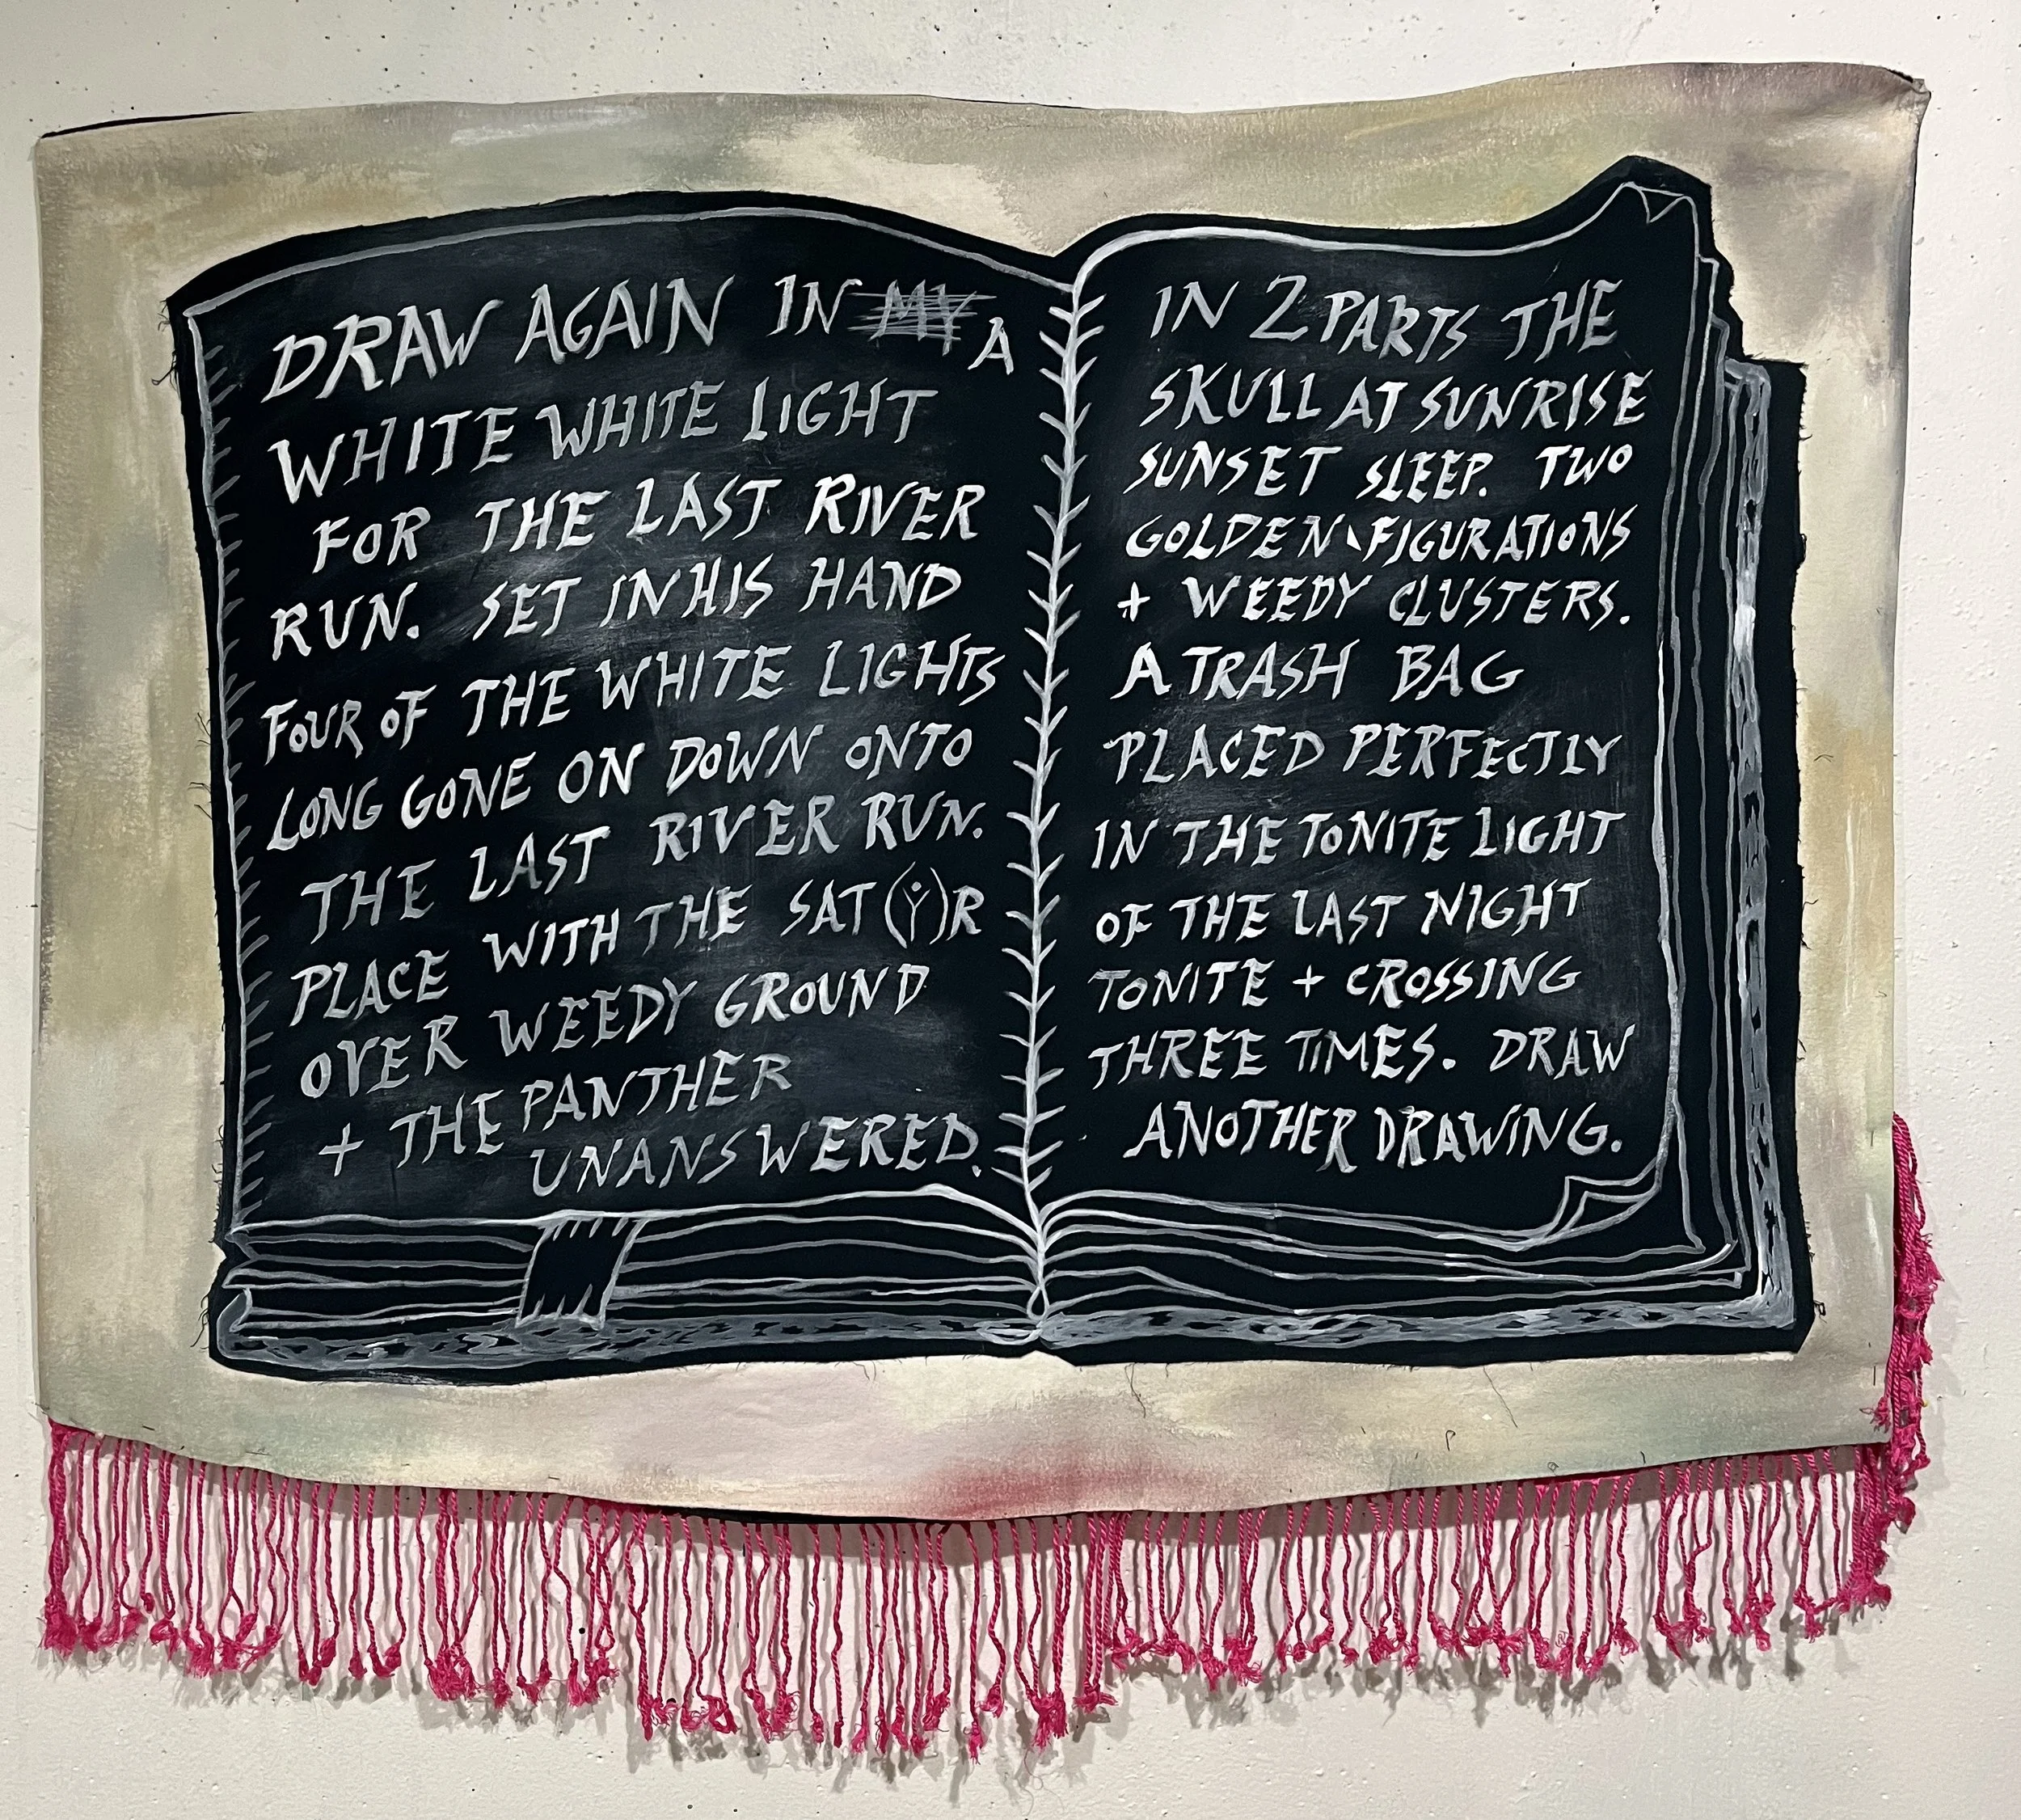 DRAW AGAIN IN MY A
WHITE WHITE LIGHT
FOR THE LAST RIVER
RUN. SET IN HIS HAND
FOUR OF THE WHITE LIGHTS
LONG GONE ON DOWN ONTO
THE LAST RIVER RUN.
PLACE WITH THE SAT(Y)R
OVER WEEDY GROUND
+ THE PANTHER
UNANSWERED.
IN 2 PARTS THE
SKULL AT SUNRISE
SUNSET SLEEP. TWO
GOLDEN FIGURATIONS
+ WEEDY CLUSTERS.
A TRASH BAG
PLACED PERFECTLY
IN THE TONITE LIGHT
OF THE LAST NIGHT
TONITE + CROSSING
THREE TIMES. DRAW
ANOTHER DRAWING.